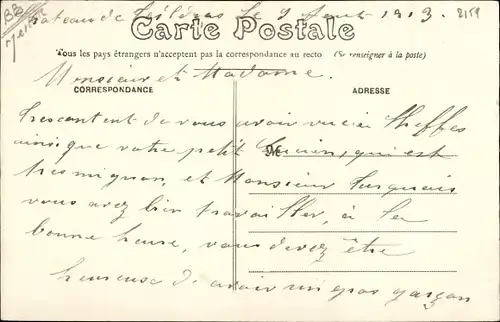 Carte Postale
1913. 2159
Tous les pays étrangers n'acceptent pas la correspondance au recto (Se renseigner à la poste)
Monsieur et Madame.
CORRESPONDANCE ADRESSE
Tres content de vous avoir vu à
ainsi que votre petit qui est
tres mignon, et Monsieur
vous avez bien travailler, à la
bonne heure, vous devez être
heureuse d'avoir un gros garçon